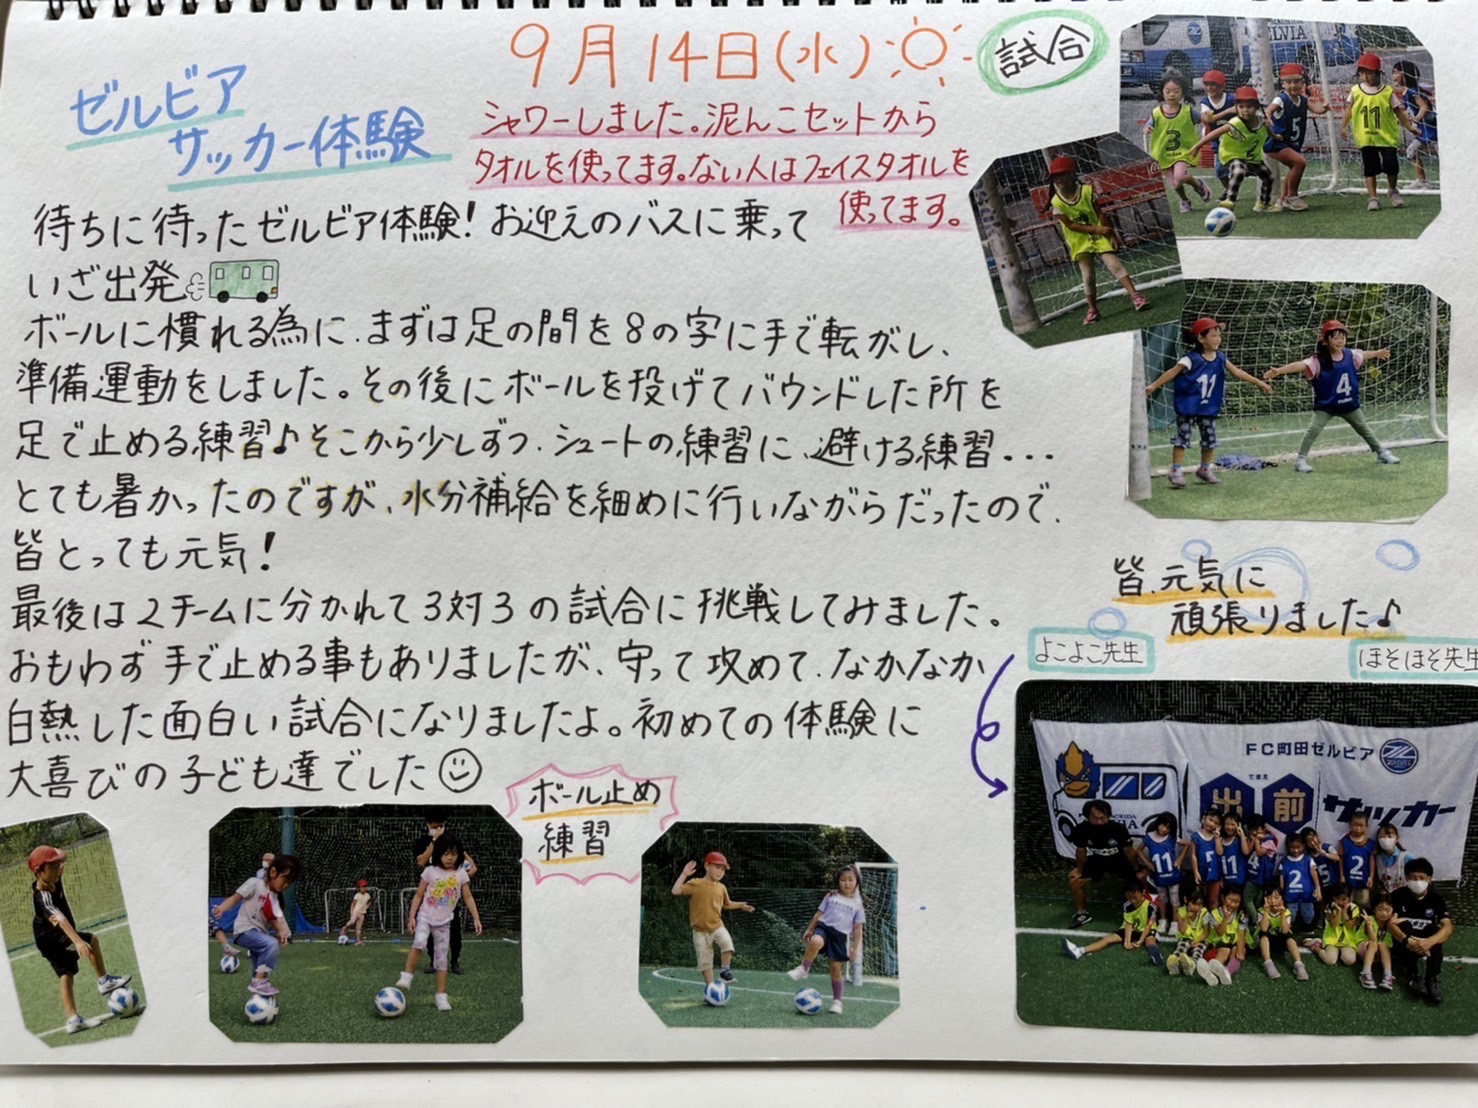 9月14日(水)
ゼルビア
サッカー体験
シャワーしました。泥んこセットから
タオルを使ってます。ない人はフェイスタオルを
使ってます。
試合
待ちに待ったゼルビア体験!お迎えのバスに乗って
いざ出発
ボールに慣れる為に、まずは足の間を8の字に手で転がし、
準備運動をしました。その後にボールを投げてバウンドした所を
足で止める練習♪そこから少しずつ、シュートの練習に、避ける練習...
とても暑かったのですが、水分補給を細めに行いながらだったので、
皆とっても元気!
最後は2チームに分かれて3対3の試合に挑戦してみました。
おもわず手で止める事もありましたが、守って攻めて、なかなか
白熱した面白い試合になりましたよ。初めての体験に
大喜びの子ども達でした
ボール止め
練習
皆、元気に
頑張りました♪
よこよこ先生
ほそほそ先生
FC町田ゼルビア
でまえ
出前サッカー
ELVIA
3
5
11
11
4
11
11
4
5
2
2